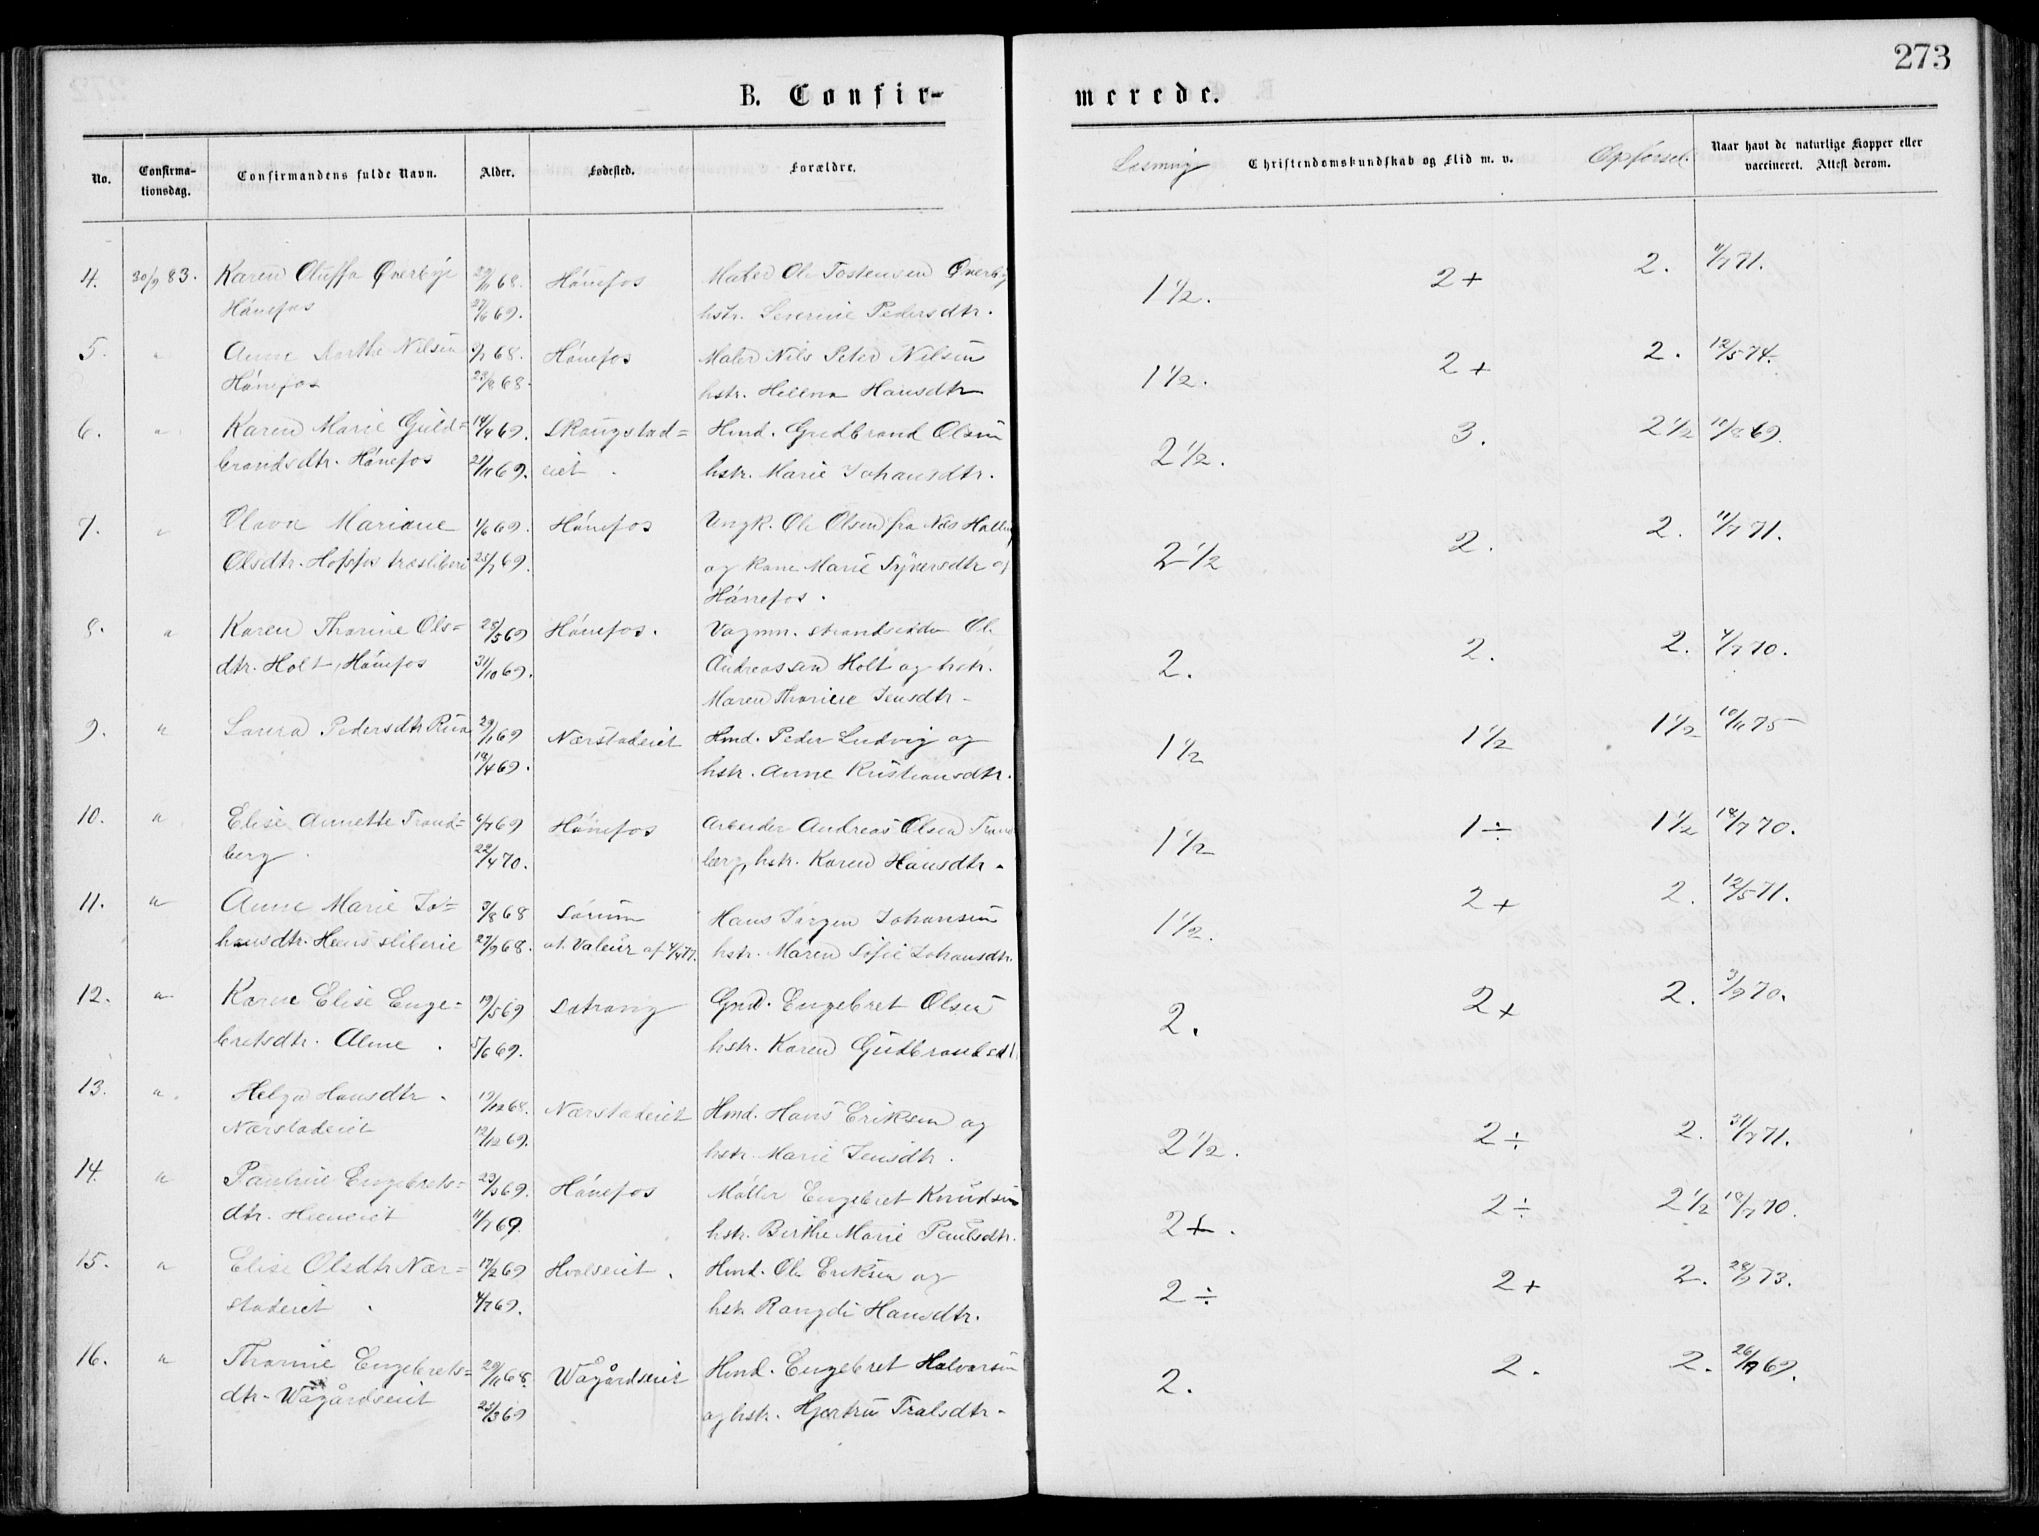 273
B. Confir-
merede.
No.
Confirma-
tionsdag.
Confirmandens fulde Navn.
Alder.
Fødested.
Forældre.
Læsning
Christendomskundskab og Flid m. v.
Opførsel.
Naar havt de naturlige Kopper eller
vaccineret. Attest derom.
4. 30/9 83. Karen Oluffa Øverbye 29/11 68. Hönefos Maler Ole Tostensen Øverby 1½. 2+ 2. 11/7 71.
Hönefos 27/6 69. hstr. Severine Pedersdtr.
5. " Anne Marthe Nilsen 9/7 68. Hönefos Maler Nils Peter Nilsen 1½. 2+ 2. 12/5 74.
Hönefos 23/8 68. hstr. Hellena Hansdtr
6. " Karen Marie Guld= 14/4 69. Skougstad= Hmd. Gudbrand Olsen 2½. 3. 2½ 11/8 69.
brandsdtr. Hönefos 21/11 69. eiet. hstr. Marie Johansdtr.
7. " Olava Mariane 1/6 69. Hönefos Ungk. Ole Olsen fra Næs Halling 2½ 2. 2. 11/7 71.
Olsdtr. Hofsfos træsliberi 25/7 69. og kone Marie Syversdtr af
Hönefos.
8. " Karen Thorine Ols= 28/5 69 Hönefos. Vognm. strandsidder Ole 2. 2. 2. 4/7 70.
dtr. Holt, Hönefos 31/10 69. Andreassen Holt og hstr.
Maren Thorine Jensdtr.
9. " Laura Pedersdtr Rua 29/1 69 Nærstadeiet Hmd. Peder Ludvig og 1½ 1½ 1½ 10/11 75
19/4 69. hstr. Anne Kristiansdtr.
10. " Elise Annette Trand= 6/7 69 Hönefos Arbeider Andreas Olsen Trand 1½ 1÷ 1½ 18/7 70.
berg. 22/4 70. berg, hstr. Karen Hansdtr.
11. " Anne Marie Jo= 3/8 68 Sørum Hans Jørgen Johansen 1½. 2+ 2. 12/5 71.
hansdtr. Hens sliberie 27/9 68. at. Valeur af 4/4 77. hstr. Maren Sofie Johansdtr.
12. " Karen Elise Enge= 19/5 69 Satrang Gmd. Engebret Olsen 2. 2+ 2. 3/9 70.
bretsdtr. Alme. 5/6 69. hstr. Karen Gudbrandsdt
13. " Helga Hansdtr. 19/12 68. Nærstadeiet Hmd. Hans Eriksen og 2½. 2÷ 2. 31/7 71.
Nærstadeiet 12/12 69. hstr. Marie Jensdtr.
14. " Pauline Engebrets= 23/3 69. Hönefos Möller Engebret Knudsen 2+. 2÷ 2½ 18/7 70.
dtr. Heneiet 11/7 69. hstr. Birthe Marie Paulsdtr.
15. " Elise Olsdtr Nær= 17/2 69 Hvalseiet. Hmd. Ole Eriksen og 2÷ 2+ 2. 28/7 73.
stadeiet. 4/7 69. hstr Rangdi Hansdtr.
16. " Thorine Engebrets= 29/11 68. Wågårdseiet Hmd. Engebret Halvorsen 2. 2. 2. 26/9 69.
dtr. Wågårdseiet 25/3 69 og hstr. Hjertru Tralsdtr.